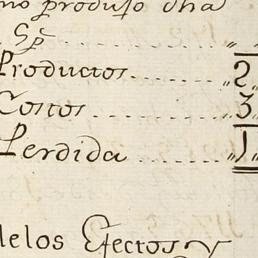 mo produso dha
Sp̃ ,, ,,
Productos 2,
Costos 3,
Perdida ,, 1,,
delos Efectos y